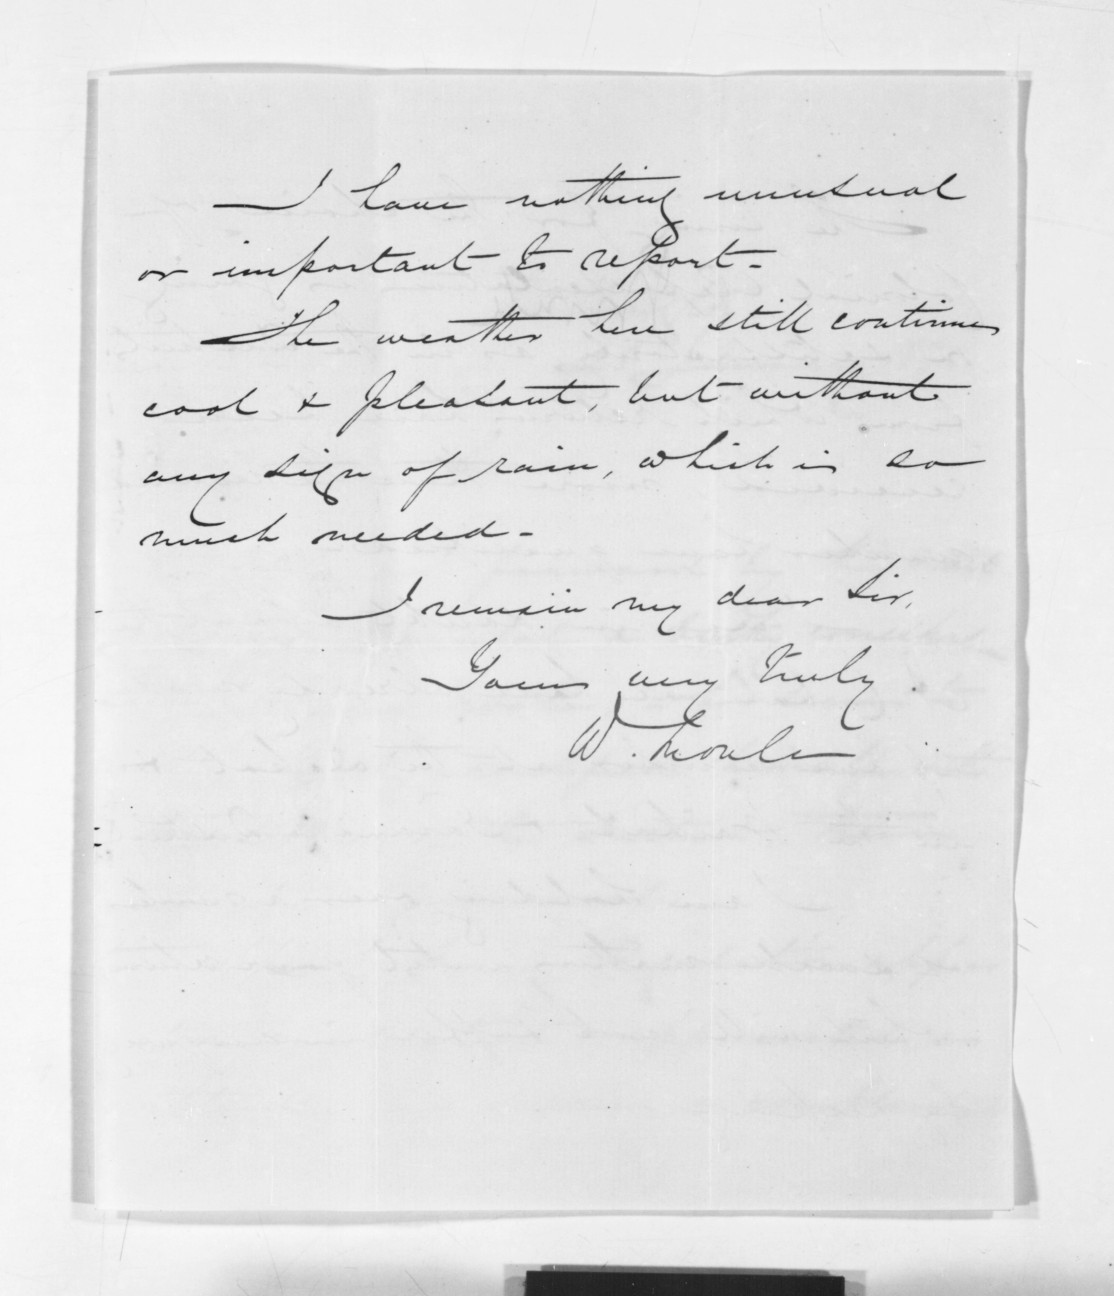 I have nothing unusual
or important to report -
The weather here still continues
cool & pleasant, but without
any sign of rain, which is so
much needed -
I remain my dear Sir,
Yours very truly
W.